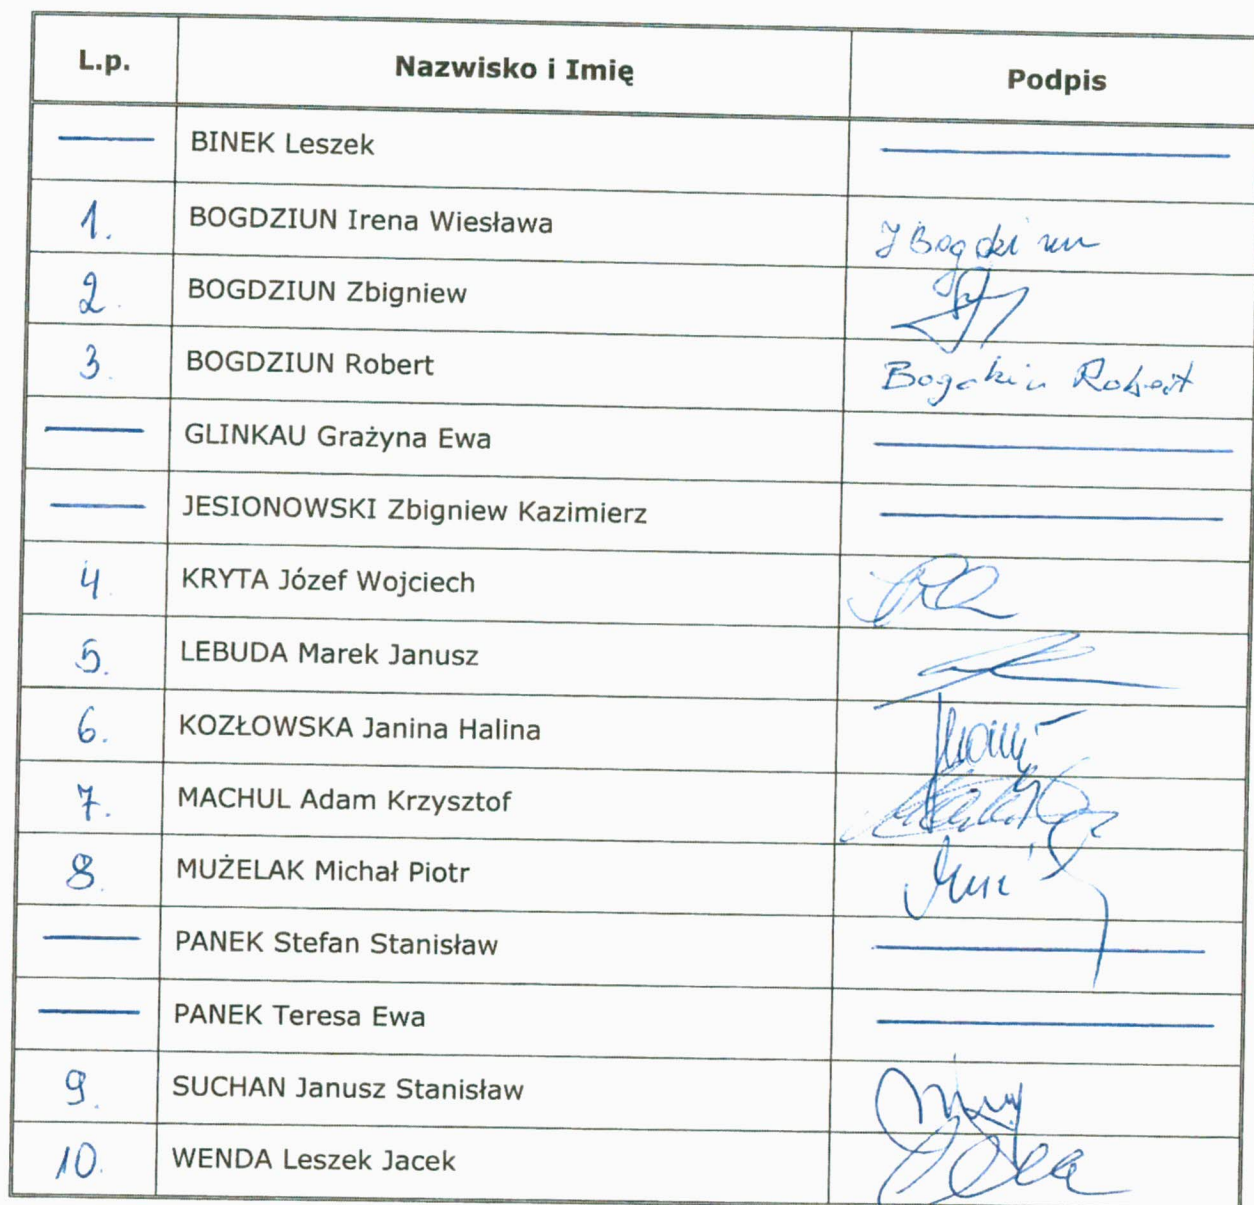 L.p. Nazwisko i Imię Podpis
BINEK Leszek
1. BOGDZIUN Irena Wiesława
2. BOGDZIUN Zbigniew
3. BOGDZIUN Robert Robert
GLINKAU Grażyna Ewa
JESIONOWSKI Zbigniew Kazimierz
4 KRYTA Józef Wojciech
5. LEBUDA Marek Janusz
6. KOZŁOWSKA Janina Halina
7. MACHUL Adam Krzysztof
8. MUŻELAK Michał Piotr
PANEK Stefan Stanisław
PANEK Teresa Ewa
9. SUCHAN Janusz Stanisław
10. WENDA Leszek Jacek